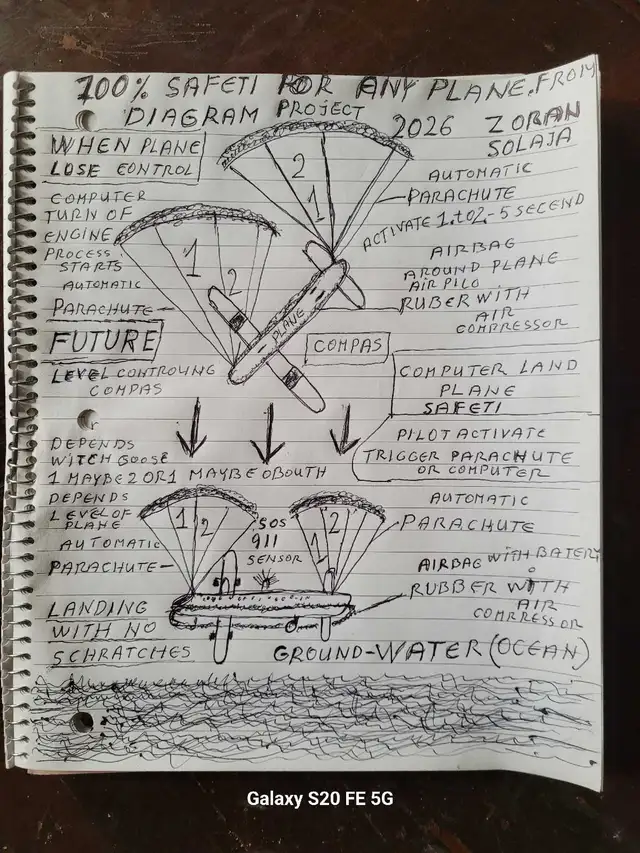 100% SAFETI FOR ANY PLANE. FROM
DIAGRAM PROJECT 2026 ZORAN
SOLAJA
WHEN PLANE
LOSE CONTROL
COMPUTER
TURN OF
ENGINE
PROCESS
STARTS
AUTOMATIC
PARACHUTE
FUTURE
LEVEL CONTROLING
COMPAS
2
1
1
2
PLANE
AUTOMATIC
PARACHUTE
ACTIVATE 1.to2-5 SECEND
AIRBAG
AROUND PLANE
AIR PILO
RUBER WITH
AIR
COMPRESSOR
COMPAS
COMPUTER LAND
PLANE
SAFETI
PILOT ACTIVATE
TRIGGER PARACHUTE
OR COMPUTER
DEPENDS
WITCH GOOSE
1 MAYBE 2 OR 1 MAYBE OBOUTH
DEPENDS
LEVEL OF
PLANE
AUTOMATIC
PARACHUTE
1 2
SOS
911
SENSOR
2
1
AUTOMATIC
PARACHUTE
AIRBAG WITH BATERY
RUBBER WITH
AIR
COMRRESSOR
LANDING
WITH NO
SCHRATCHES
GROUND-WATER (OCEAN)
Galaxy S20 FE 5G